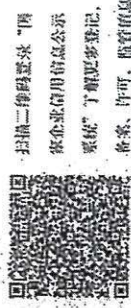 扫描二维码登录“国
家企业信用信息公示
系统”了解更多登记、
备案、许可、监管信息